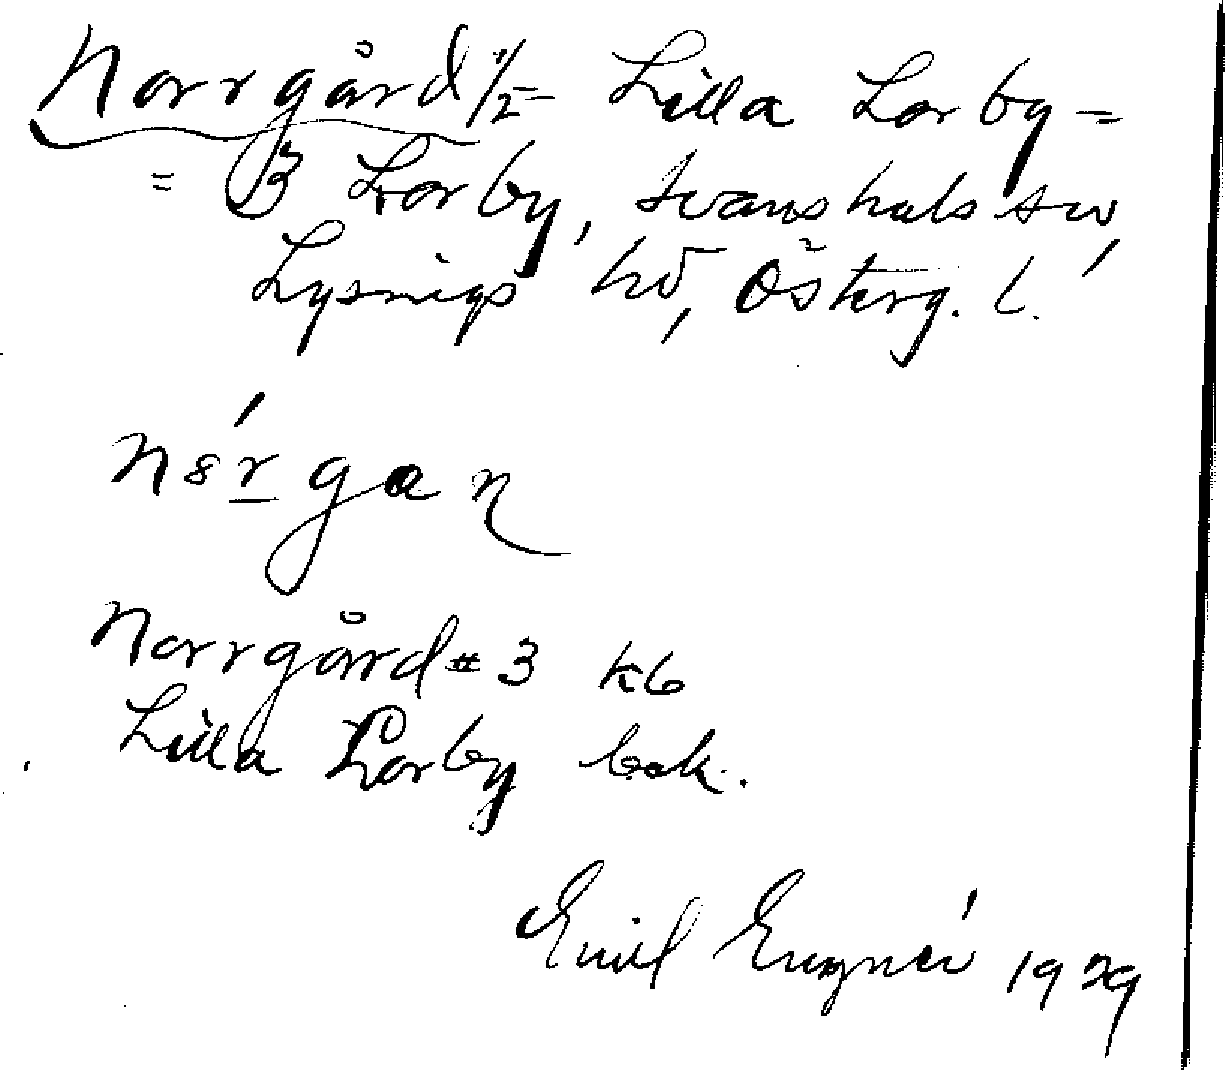 Norrgård 1/2 = Lilla Lorby =
= 3 Lorby, Svanshals sn,
Lysings hd, Österg. l.
n8́rgan
Norrgård = 3 kb
Lilla Lorby bok.
Emil 1929